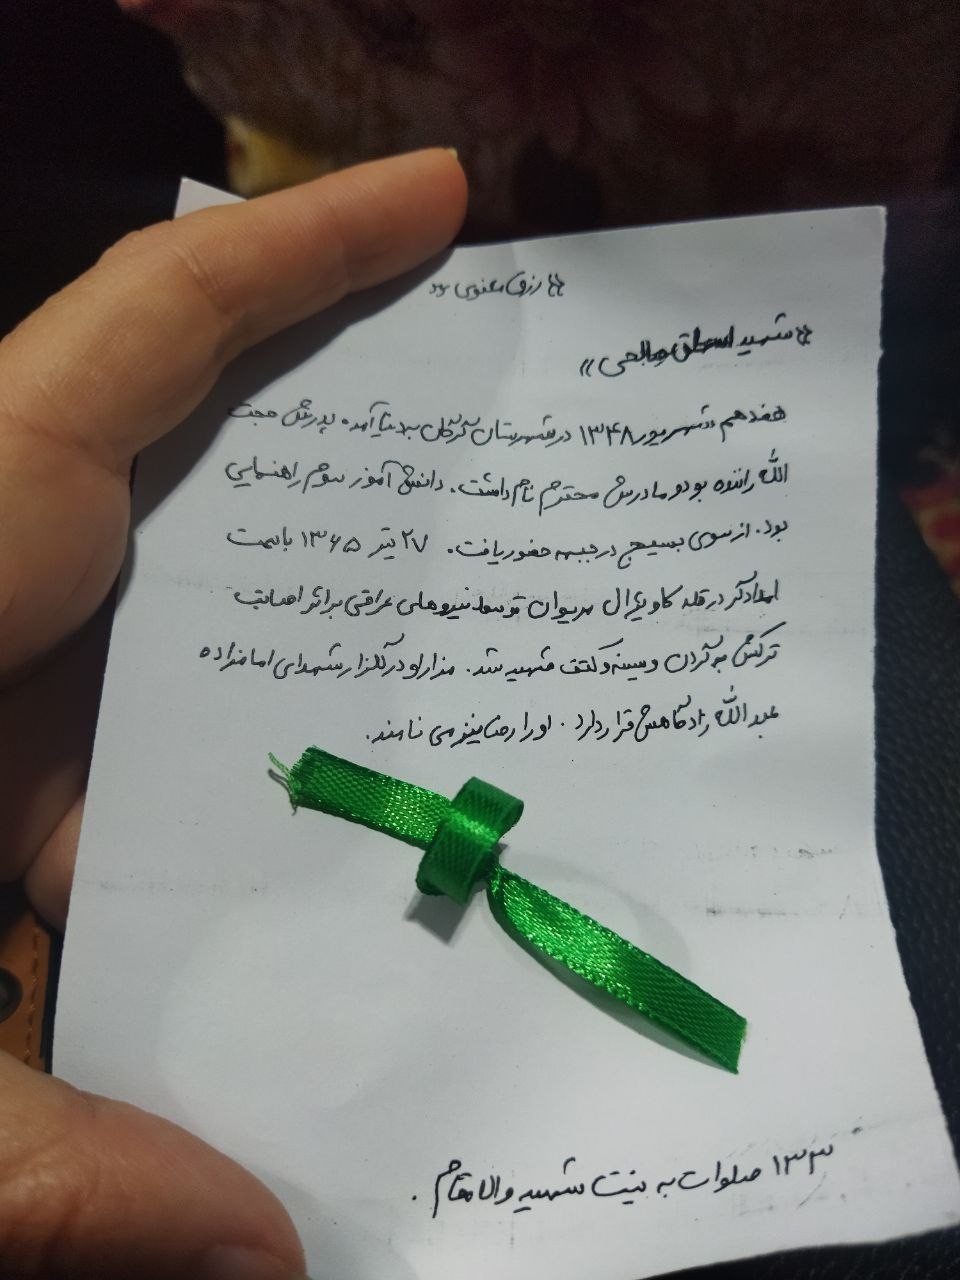 «رزق معنوی
«شهید اسحاق صالحی»
هفدهم شهریور ۱۳۴۸ در شهرستان گرگان به دنیا آمد. پدرش حجت
الله راننده بود و مادرش محترم نام داشت. دانش آموز سوم راهنمایی
بود. از سوی بسیج در جبهه حضور یافت. ۲۷ تیر ۱۳۶۵ با سمت
امدادگر در قله کاو یژال مریوان توسط نیروهای عراقی بر اثر اصابت
ترکش به گردن و سینه و کتف شهید شد. مزار او در گلزار شهدای امامزاده
عبدالله زادگاهش قرار دارد. او را رضا نیز می نامند.
۱۳۳ صلوات به نیت شهید والامقام.